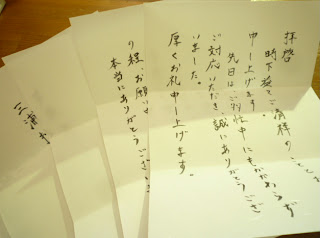 拝啓
時下益々ご清祥のことと
申し上げます。
先日はご多忙中にもかかわらず
ご対応いただき、誠にありがとうござ
いました。
厚くお礼申し上げます。
の程、お願い
本当にありがとうござ
三浦